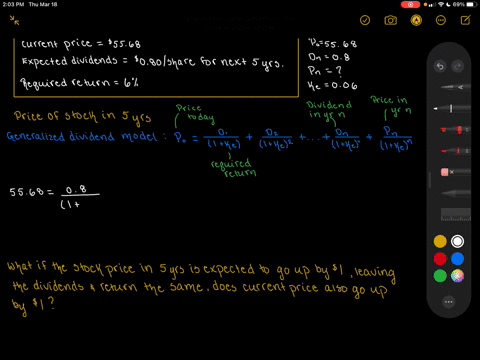 2:03 PM Thu Mar 18
69%
Current price = $55.68
Expected dividends = $0.80/share for next 5 yrs.
Required return = 6%
P₀ = 55.68
Dn = 0.8
Pn = ?
Ke = 0.06
Price of stock in 5 yrs
Price today
Dividend in yr n
Price in yr n
Generalized dividend model : P₀ = D₁/(1+Ke) + D₂/(1+Ke)² + ... + Dn/(1+Ke)ⁿ + Pn/(1+Ke)ⁿ
required return
55.68 = 0.8/(1+
What if the stock price in 5 yrs is expected to go up by $1, leaving
the dividends & return the same, does current price also go up
by $1?